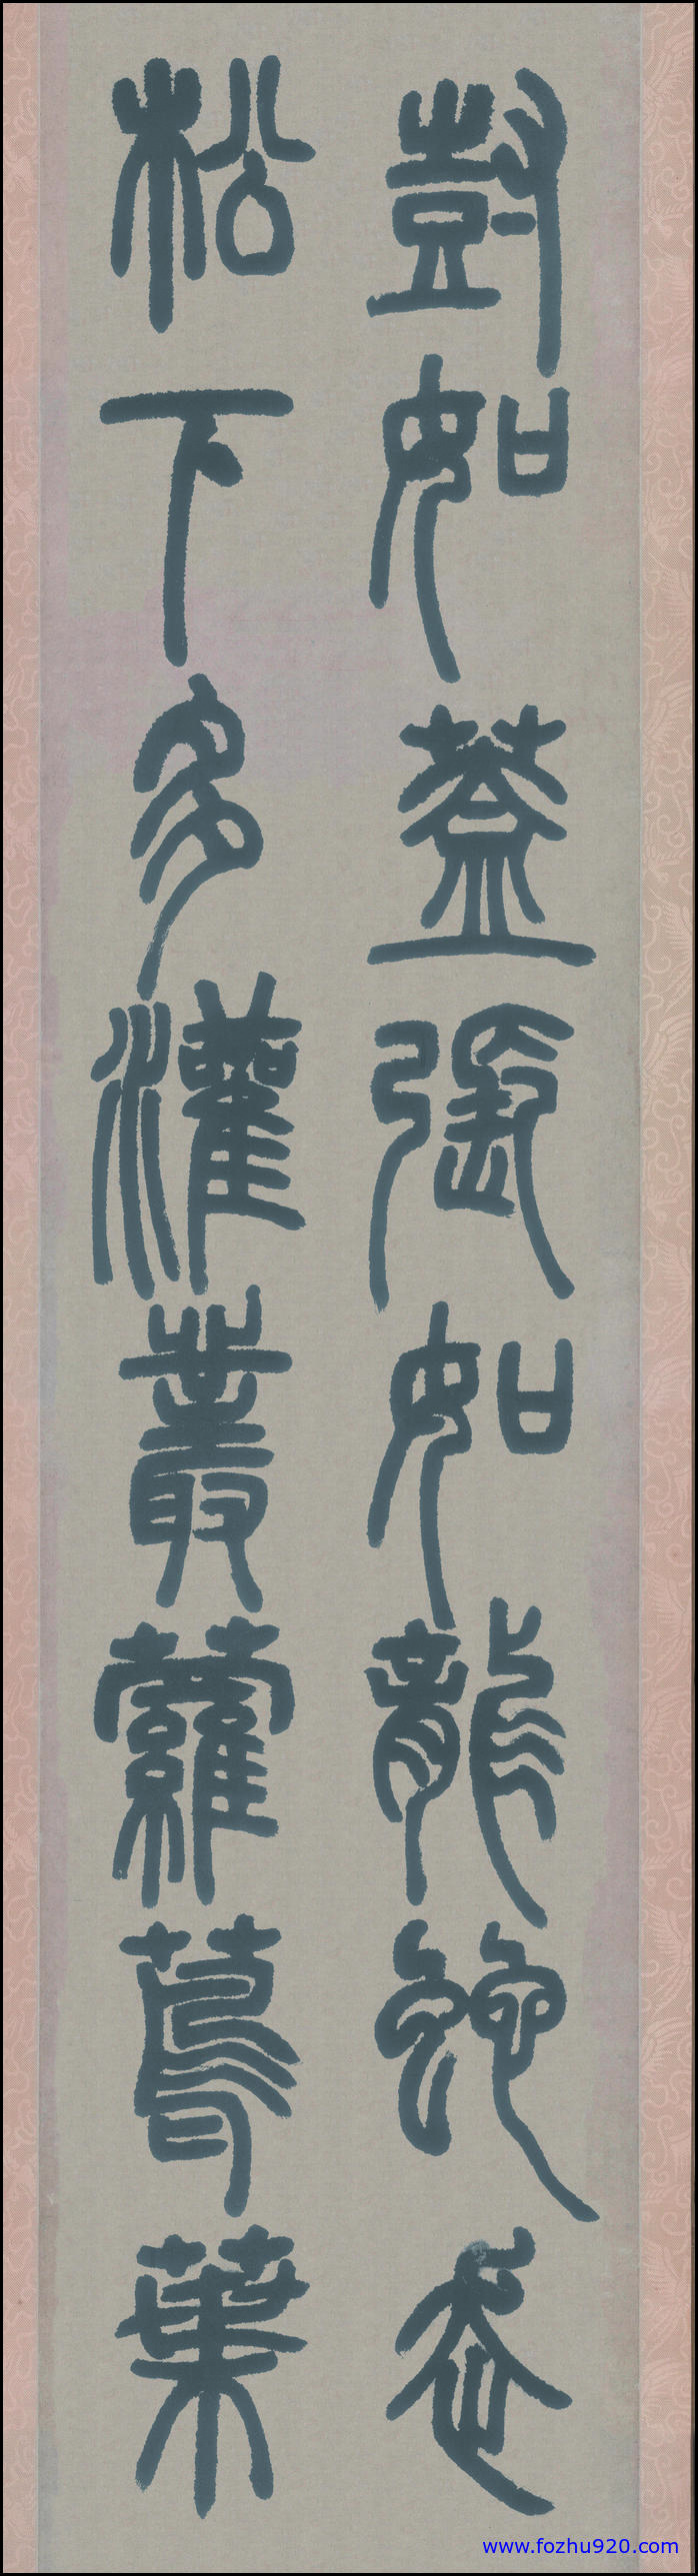 尌如蓋張如龍蛇走
松下多灌叢蘿蔦葉
www.fozhu920.com